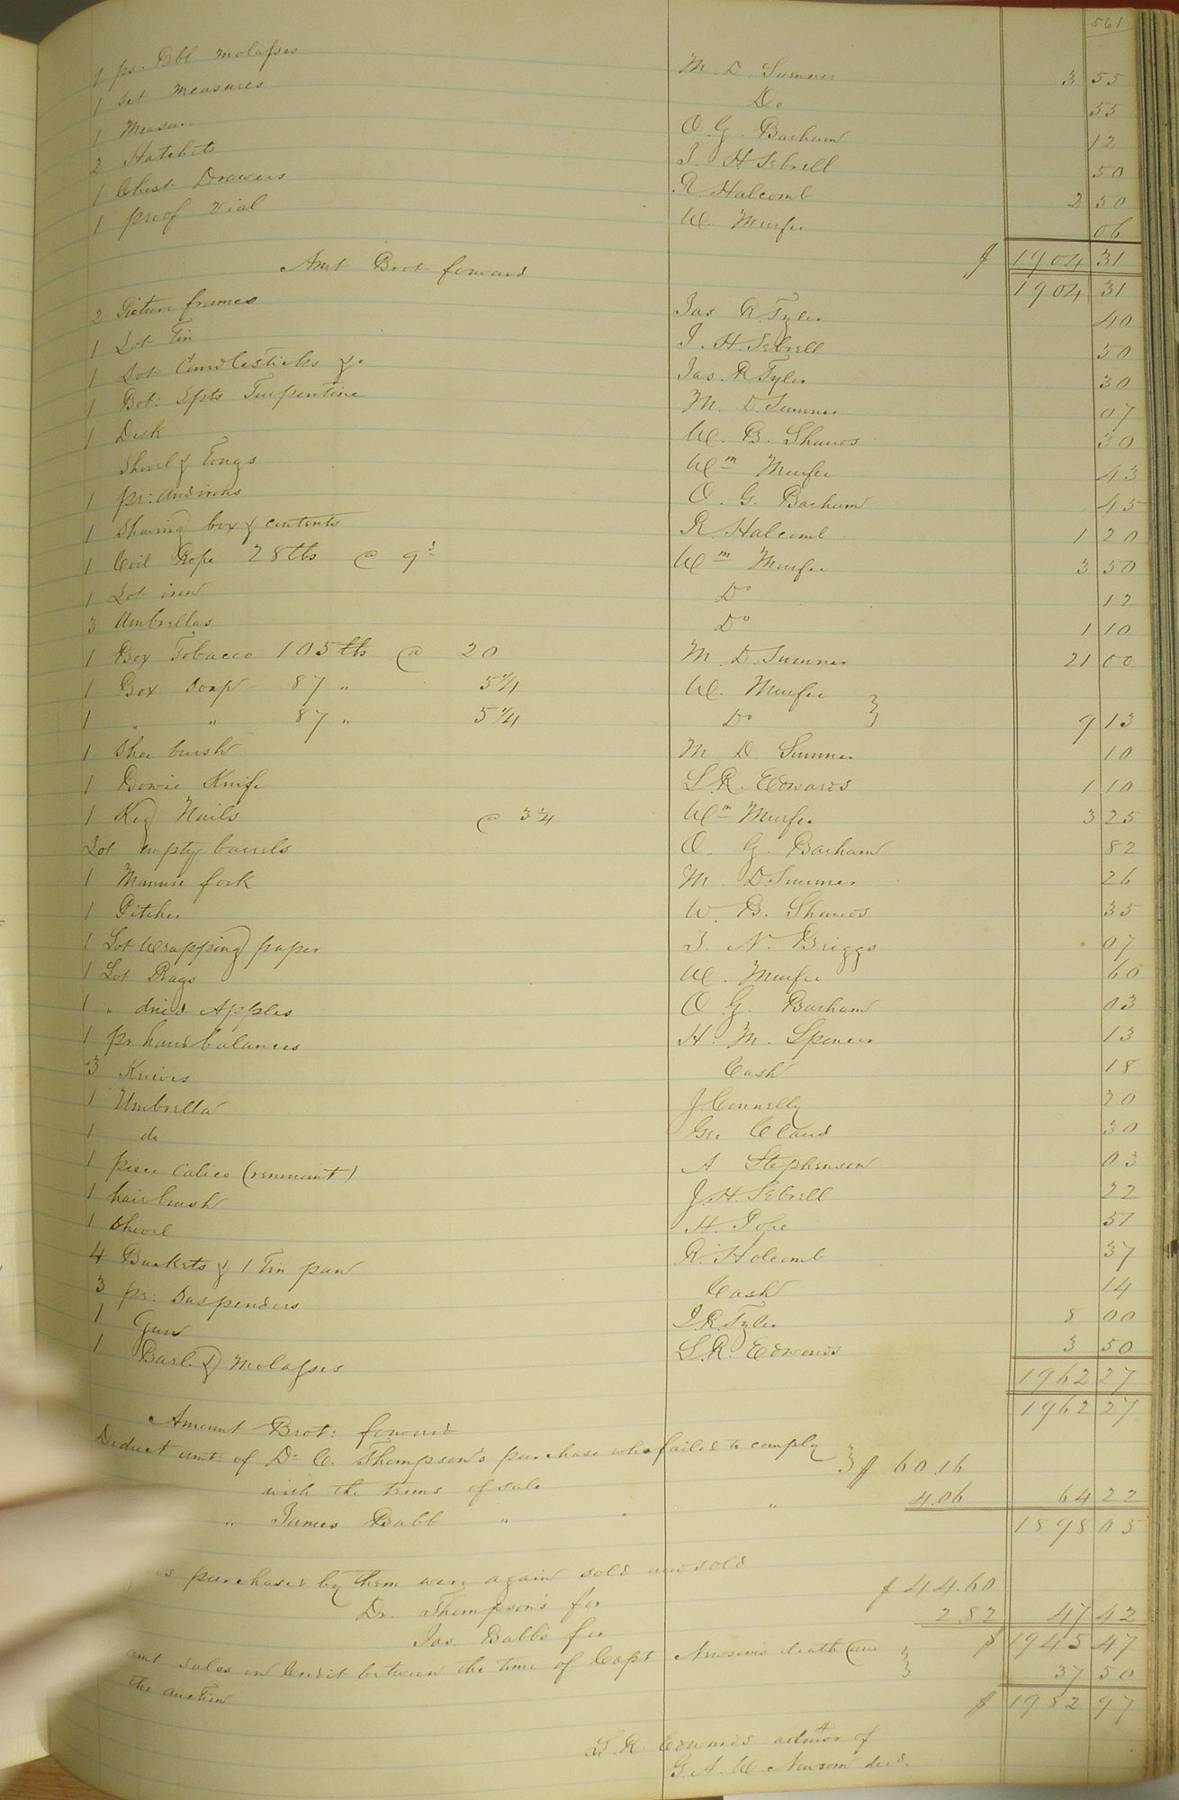 561
1 pr. Bbl molasses M. D. Sumner 3 55
1 set measures Do 55
1 Measure O. G. Barham 12
2 Hatchets J. H. Sebrell 50
1 Chest Drawers R. Halcomb 2 50
1 proof vial W. Murfee 06
$ 1904 31
Amt Brot forward 1904 31
2 Picture frames Jas R. Tyler 40
1 Lot Tin J. H. Sebrell 50
1 Lot Candlesticks &c Jas. R Tyler 30
1 Bot: Spts Turpentine M. D. Sumner 07
1 Desk W. B. Shands 30
Shovel & Tongs Wm Murfee 43
1 pr: andirons O. G. Barham 45
1 Shaving box & contents R Halcomb 1 20
1 Coil Rope 28 lbs @ 9 Wm Murfee 3 50
1 Lot iron Do 12
3 Umbrellas Do 1 10
1 Box Tobacco 105 lbs @ 20 M. D. Sumner 21 00
1 Box Soap 87 " 5 1/4 W. Murfee
1 " " 87 " 5 1/4 Do 9 13
1 Shoe brush M D. Sumner 10
1 Bowie Knife L. R. Edwards 1 10
1 Keg Nails @ 3 1/4 Wm Murfee 3 25
Lot empty barrels O. G. Barham 82
1 Manure fork M D Sumner 26
1 Pitcher W. B. Shands 35
1 Lot Wrapping paper J. N. Briggs 07
1 Lot Rags W. Murfee 60
1 " dried Apples O G. Barham 03
1 pr hand balances H. M. Spencer 13
3 Knives Cash 18
1 Umbrella J. Connelly 20
1 do Geo Claud 30
1 piece Calico (remnant) A Stephenson 03
1 hair brush J. H. Sebrell 22
1 Shovel H. Pope 37
4 Baskets & 1 Tin pan R. Holcomb 37
3 pr: Suspenders Cash 14
1 Gun J. R. Tyler 8 00
1 Barl: Molasses L. R. Edwards 3 50
1962 27
Amount Brot: forward 1962 27
Deduct amt: of Dr C. Thompson's purchase who failed to comply
with the terms of sale $ 60.16
" James Babb " " " 4.06 64 22
1898 05
purchased by them were again sold
Dr. Thompson's for $ 44.60
Jas. Babb's for 2 82 47 42
$ 1945 47
amt sales on Credit between the time of Capt Newsom's death and
the auction 37 50
$ 1982 97
L. R. Edwards admtor of
G. A. W. Newsom decd.